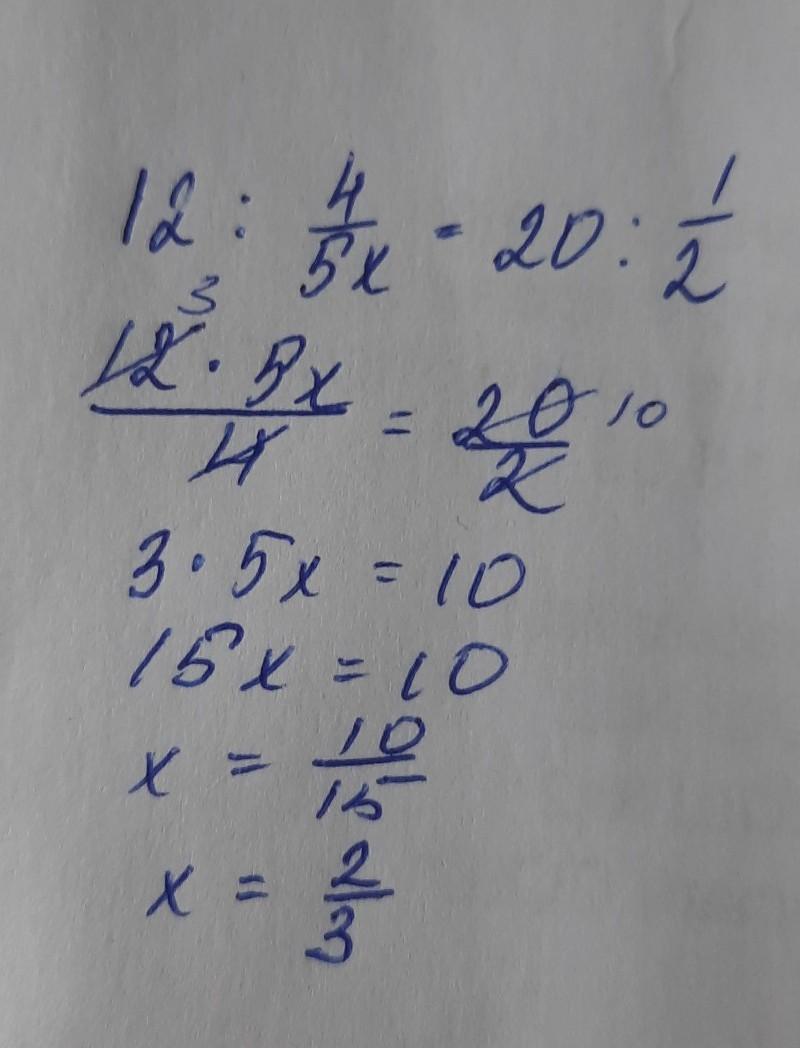 12 : 4/5x = 20 : 1/2
3
12 · 5x / 4 = 20/2 10
3 · 5x = 10
15x = 10
x = 10/15
x = 2/3